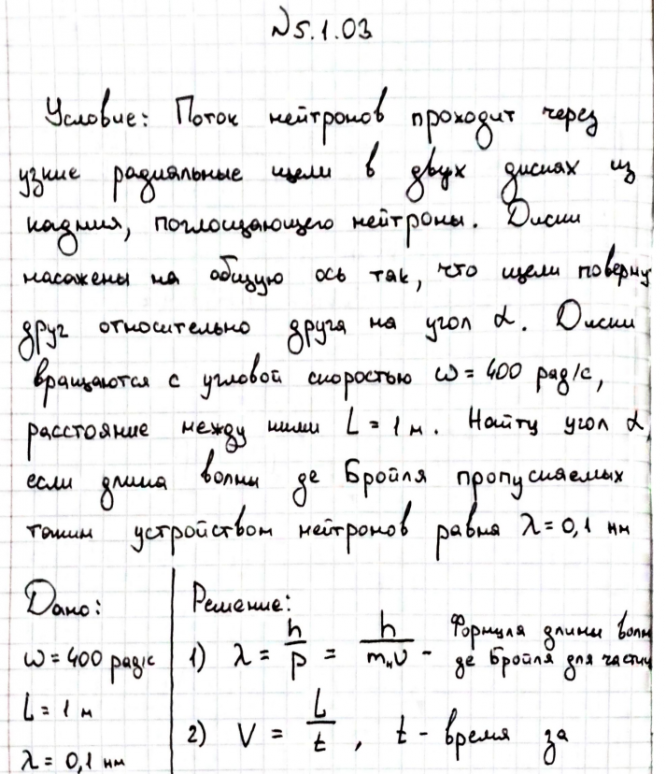 №5.1.03
Условие: Поток нейтронов проходит через
узкие радиальные щели в двух дисках из
кадмия, поглощающего нейтроны. Диски
насажены на общую ось так, что щели поверну
друг относительно друга на угол α. Диски
вращаются с угловой скоростью ω = 400 рад/с,
расстояние между ними L = 1 м. Найти угол α,
если длина волны де Бройля пропускаемых
таким устройством нейтронов равна λ = 0,1 нм
Дано:
ω = 400 рад/с
L = 1 м
λ = 0,1 нм
Решение:
1) λ = h/p = h/(mнv) - Формула длины волн
де Бройля для частиц
2) V = L/t, t - время за